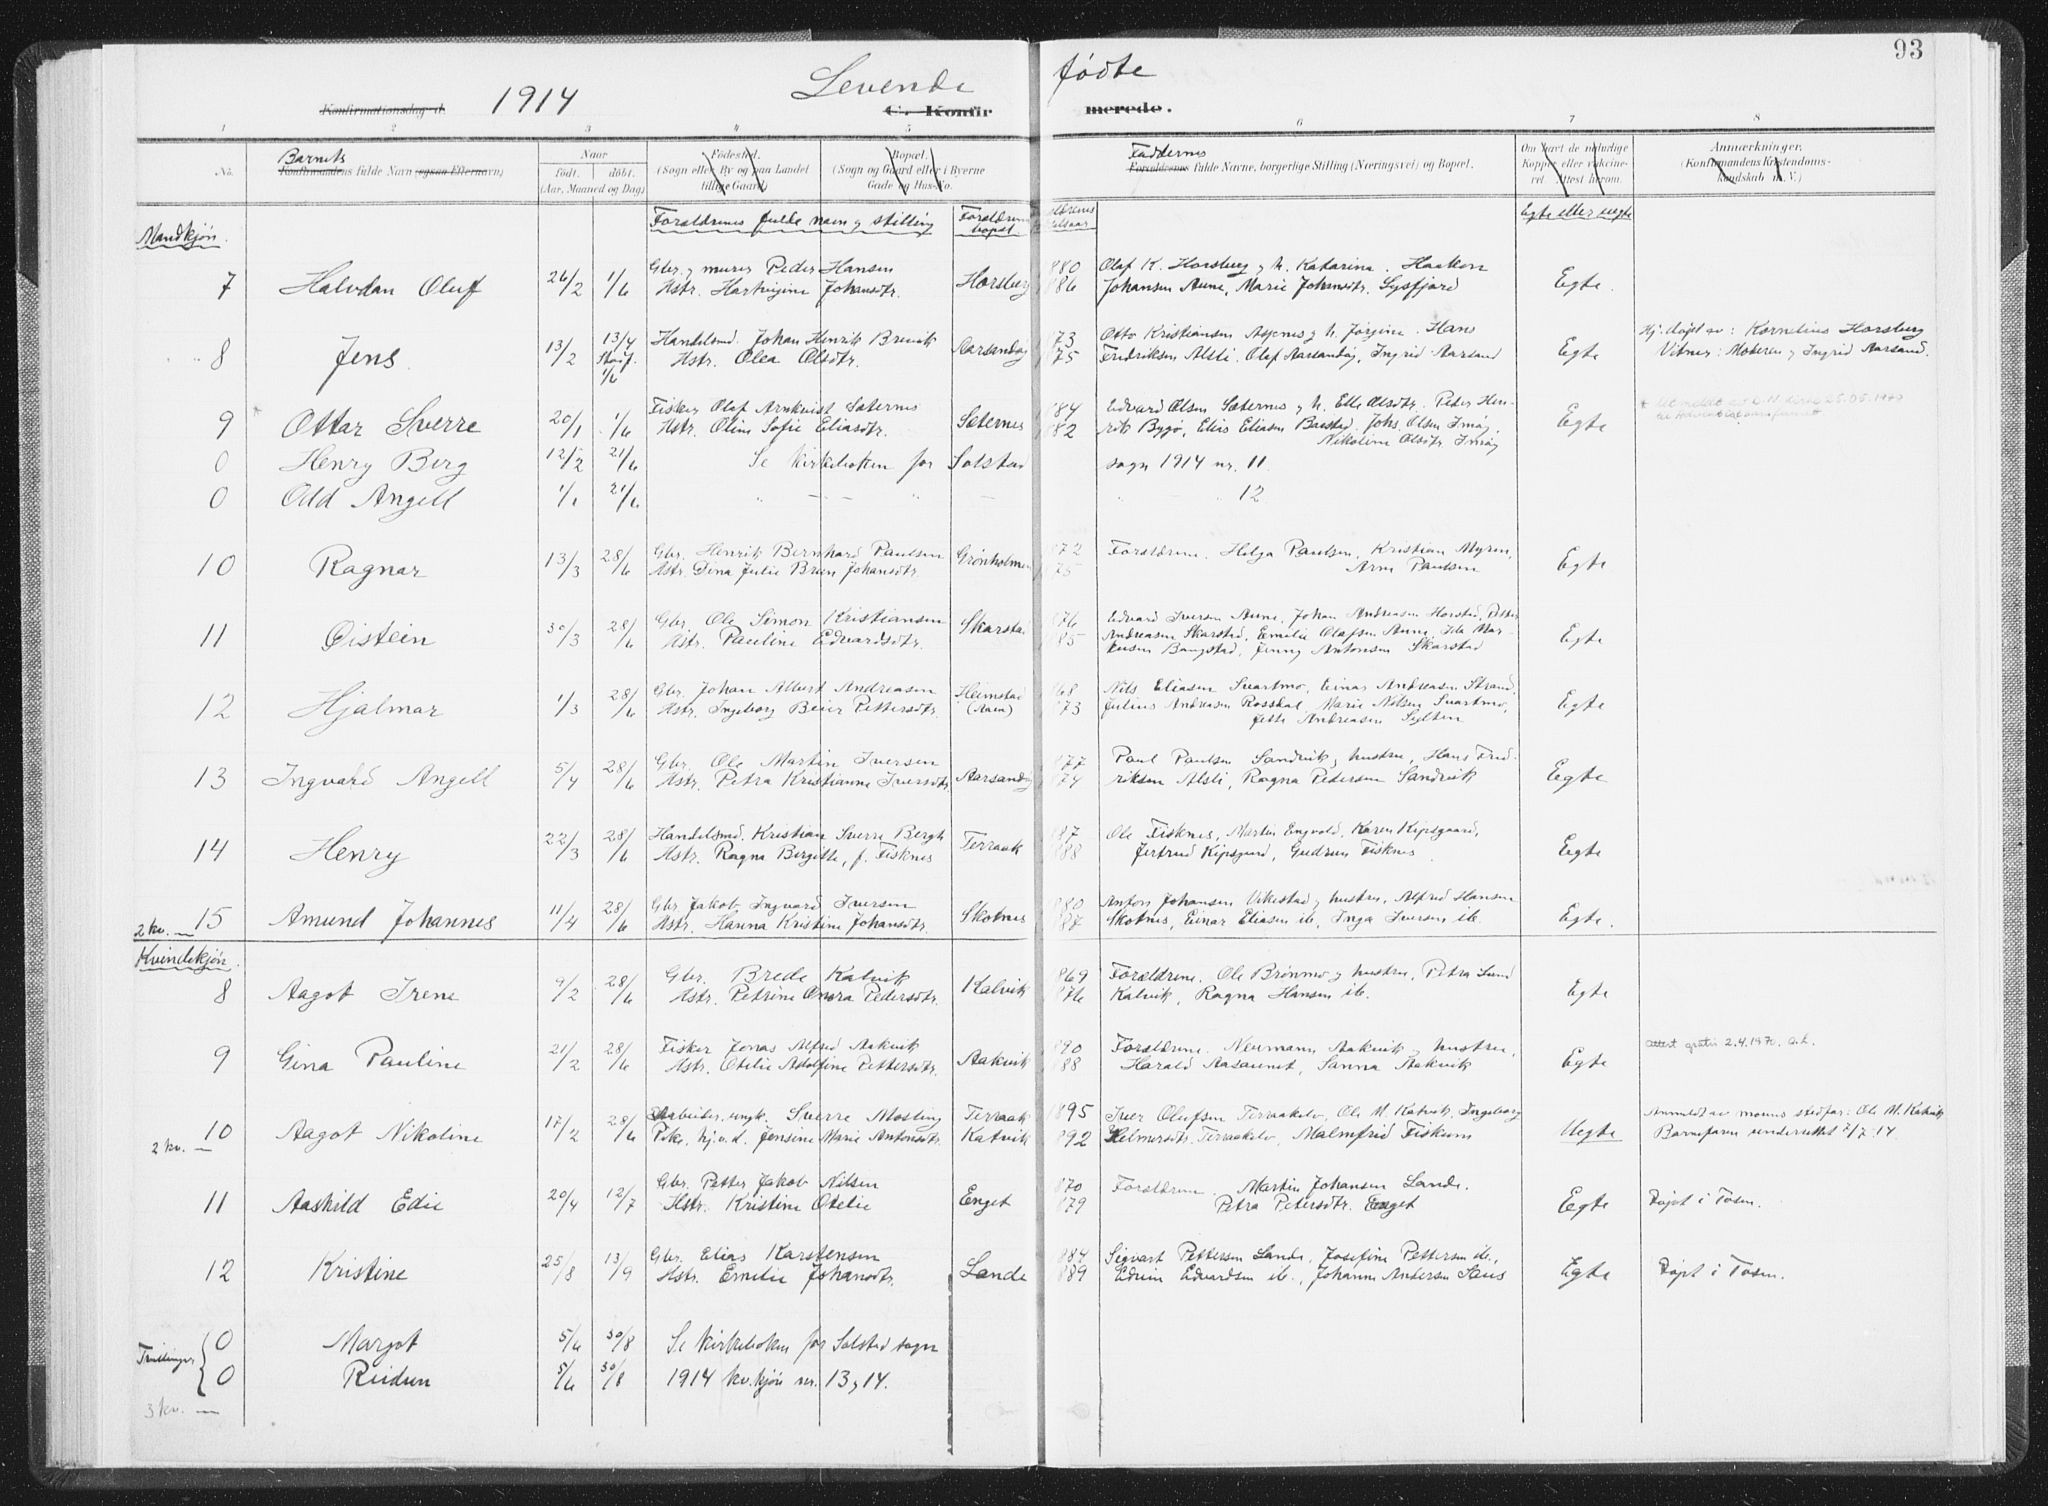 93
Levende fødte
Konfirmationsdag d. 1914 C. Konfirmerede.
1 2 3 4 5 6 7 8
No.
Barnets
Konfirmandens fulde Navn (ogsaa Efternavn)
Naar
født. døbt.
(Aar, Maaned og Dag)
Fødested.
(Sogn eller By og paa Landet
tillige Gaard)
Bopæl.
(Sogn og Gaard eller i Byerne
Gade og Hus-No.
Faddernes
Forældrenes fulde Navne, borgerlige Stilling (Næringsvei) og Bopæl.
Om havt de naturlige
Kopper eller vakcine-
ret. Attest herom.
Anmærkninger.
(Konfirmandens Kristendoms-
kundskab m. V.)
Mandkjøn.
Forældrenes fulde navn og stilling
Forældrenes bopæl
Egte eller uegte
7 Halvdan Oluf 26/2 1/6 Gbr. og murer Peder Hansen Horsberg 880 Olaf K. Horsberg og h. Katarina. Haakon Egte.
Hstr. Hartvigine Johansdtr. 886 Johansen Aune, Marie Johansdtr. Sysfjord
8 Jens 13/2 13/4 Handelsmd. Johan Henrik Brevik Aarsandøy 73 Otto Kristiansen Aspenes og h. Jørgine. Hans Egte Hj. døpt av: Kornelius Horsberg
1/6 Hstr. Olea Olsdtr. 75 Fredriksen Alsli. Olaf Aarsandøy, Ingrid Aarsand Vitner: Moderen og Ingrid Aarsand.
9 Ottar Sverre 20/1 1/6 Fisker Olaf Arnkvist Sæternes Sæternes 884 Edvard Olsen Sæternes og h. Elle Olsdtr. Peter Hen- Egte
Hstr. Oline Sofie Eliasdtr. 882 rik Bygø, Elias Eliasen Bustad, Johs. Olsen Imøy,
Nikoline Olsdtr. Imøy
0 Henry Berg 12/2 21/6 Se kirkeboken for Solstad sogn 1914 nr. 11.
0 Odd Angell 1/1 21/6 " — — " " " 12
10 Ragnar 13/3 28/6 Gbr. Henrik Bernhard Paulsen Grønholmen 872 Forældrene. Helga Paulsen, Kristian Myren, Egte
Hstr. Tina Julie Bruun Johansdtr. 75 Arne Paulsen
11 Øistein 30/3 28/6 Gbr. Ole Simon Kristiansen Skarstad 876 Edvard Iversen Aune, Johan Andreasen Horstad, Petter Egte
Hstr. Pauline Edvardsdtr. 885 Andreasen Skarstad, Emilie Olafsen Aune, Ida Mar-
kusen Bangstad, Jenny Antonsen Skarstad
12 Hjalmar 1/3 28/6 Gbr. Johan Albert Andreasen Heimstad 868 Nils Eliasen Svartmo, Einar Andreasen Strand, Egte
Hstr. Ingeborg Beier Pettersdtr. (Aaen) 873 Julius Andreasen Rosskal, Marie Nilsen Svartmo,
Jette Andreasen Sylten
13 Ingvard Angell 5/4 28/6 Gbr. Ole Martin Iversen Aarsandøy 877 Paul Paulsen Sandvik og hustru, Hans Fred- Egte
Hstr. Petra Kristianne Iversdtr. 874 riksen Alsli, Ragna Pedersen Sandvik
14 Henry 22/3 28/6 Handelsmd. Kristian Sverre Bergh Terraak 887 Ole Fisknes, Martin Engvold, Karen Kipsgaard, Egte
Hstr. Ragna Bergitte, f. Fisknes 888 Jertrud Kipsgaard, Gudrun Fisknes.
2 kv. — 15 Amund Johannes 11/4 28/6 Gbr. Jakob Ingvard Iversen Skotnes 880 Anton Johansen Vikestad og hustru, Alfred Hansen Egte.
Hstr. Hanna Kristine Johansdtr. 887 Skotnes, Einar Eliasen ib. Inga Iversen ib.
Kvindekjøn.
8 Aagot Irene 9/2 28/6 Gbr. Brede Kalvik Kalvik 869 Forældrene. Ole Brønmo og hustru, Petra Lund Egte
Hstr. Petrine Onora Pedersdtr. 876 Kalvik, Ragna Hansen ib.
9 Gina Pauline 21/2 28/6 Fisker Jonas Alfred Aakvik Aakvik 890 Forældrene. Neumann Aakvik og hustru, Egte Attest gratis 2.4.1970. O.L.
Hstr. Otelie Adolfine Pettersdtr. 888 Harald Aasaunet, Sanna Aakvik
10 Aagot Nikoline 17/2 28/6 Arbeider, ungk. Sverre Mosling Terraak 1895 Iver Olufsen Terraakelv, Ole M. Kalvik, Ingeborg Uegte Anmeldt av morens stedfar: Ole M. Kalvik
2 kv. — Pike, hj.v.d. Jensine Marie Antonsdtr. Kalvik 892 Hilmersdtr. Terraakelv, Malmfrid Fiskum Barnefaren underrettet 2/7 14.
11 Aashild Edie 20/4 12/7 Gbr. Petter Jakob Nilsen Enget 870 Forældrene. Martin Johansen Lande. Egte Døpt i Tosen.
Hstr. Kristine Otelie 879 Petra Petersdtr. Enget
12 Kristine 25/8 13/9 Gbr. Elias Karstensen Lande 884 Sigvart Pettersen Lande, Josefine Pettersen ib., Egte Døpt i Tosen.
Hstr. Emilie Johansdtr. 889 Edvin Edvardsen ib., Johann Andersen Saus
Tvillinger { 0 Margot 5/6 30/8 Se kirkeboken for Solstad sogn
0 Reidun 5/6 30/8 1914 kv.kjøn nr. 13 og 14.
3 kv. —